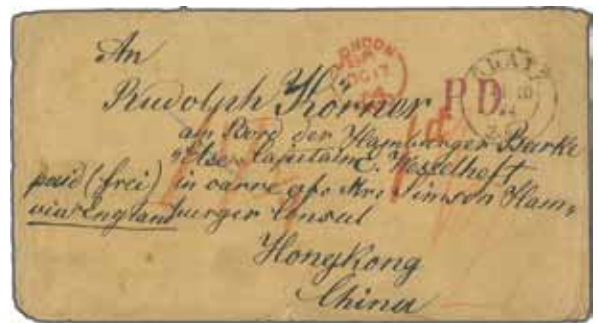 An
LONDON
GLATZ
Rudolph Körner
P.D.
am Bord der Hamburger Barke
"Else" Capitain C. Hesselheft
paid (frei) in carre of Mrs Simson Ham-
via England burger Consul
Hongkong
China